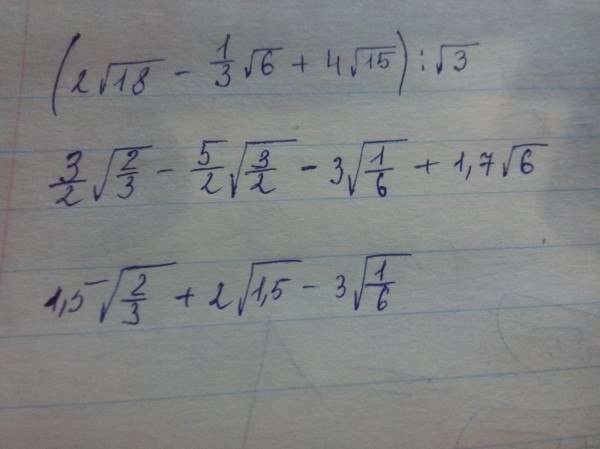 (2√18 - 1/3 √6 + 4√15) : √3
3/2 √(2/3) - 5/2 √(3/2) - 3√(1/6) + 1,7√6
1,5√(2/3) + 2√1,5 - 3√(1/6)